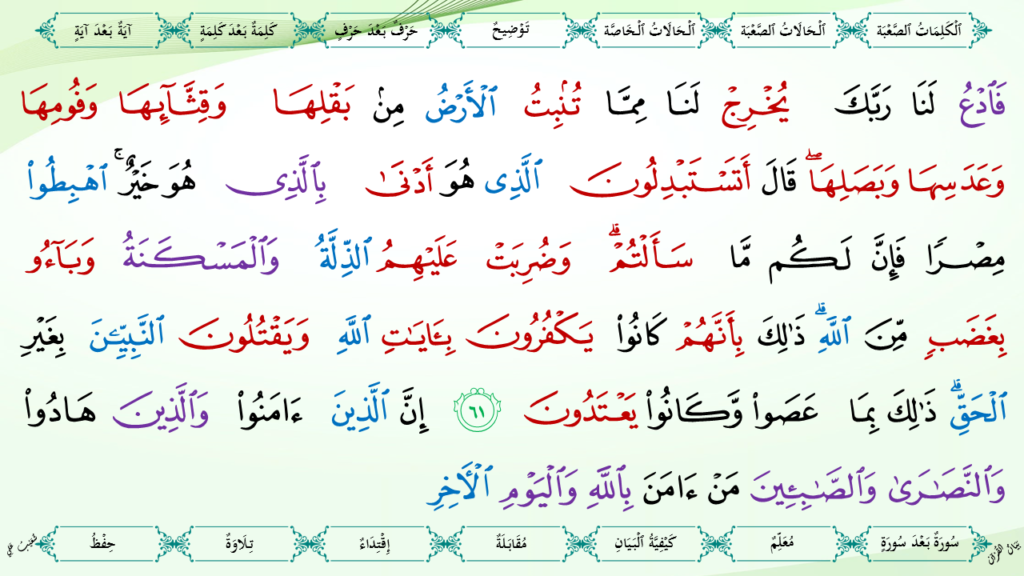 اَلْكَلِمَاتُ الصَّعْبَة اَلْحَالَاتُ الصَّعْبَة اَلْحَالَاتُ الْخَاصَّة تَوْضِيحٌ حَرْفٌ بَعْدَ حَرْفٍ كَلِمَةٌ بَعْدَ كَلِمَةٍ آيَةٌ بَعْدَ آيَةٍ
فَٱدْعُ لَنَا رَبَّكَ يُخْرِجْ لَنَا مِمَّا تُنۢبِتُ ٱلْأَرْضُ مِنۢ بَقْلِهَا وَقِثَّآئِهَا وَفُومِهَا
وَعَدَسِهَا وَبَصَلِهَا ۖ قَالَ أَتَسْتَبْدِلُونَ ٱلَّذِى هُوَ أَدْنَىٰ بِٱلَّذِى هُوَ خَيْرٌ ۚ ٱهْبِطُوا۟
مِصْرًا فَإِنَّ لَكُم مَّا سَأَلْتُمْ ۗ وَضُرِبَتْ عَلَيْهِمُ ٱلذِّلَّةُ وَٱلْمَسْكَنَةُ وَبَآءُو
بِغَضَبٍ مِّنَ ٱللَّهِ ۗ ذَٰلِكَ بِأَنَّهُمْ كَانُوا۟ يَكْفُرُونَ بِـَٔايَـٰتِ ٱللَّهِ وَيَقْتُلُونَ ٱلنَّبِيِّـۧنَ بِغَيْرِ
ٱلْحَقِّ ۗ ذَٰلِكَ بِمَا عَصَوا۟ وَّكَانُوا۟ يَعْتَدُونَ ٦١ إِنَّ ٱلَّذِينَ ءَامَنُوا۟ وَٱلَّذِينَ هَادُوا۟
وَٱلنَّصَـٰرَىٰ وَٱلصَّـٰبِـِٔينَ مَنْ ءَامَنَ بِٱللَّهِ وَٱلْيَوْمِ ٱلْـَٔاخِرِ
سُورَةٌ بَعْدَ سُورَةٍ مُعَلِّمٌ كَيْفِيَّةُ الْبَيَانِ مُقَابَلَةٌ إِقْتِدَاءٌ تِلَاوَةٌ حِفْظُ